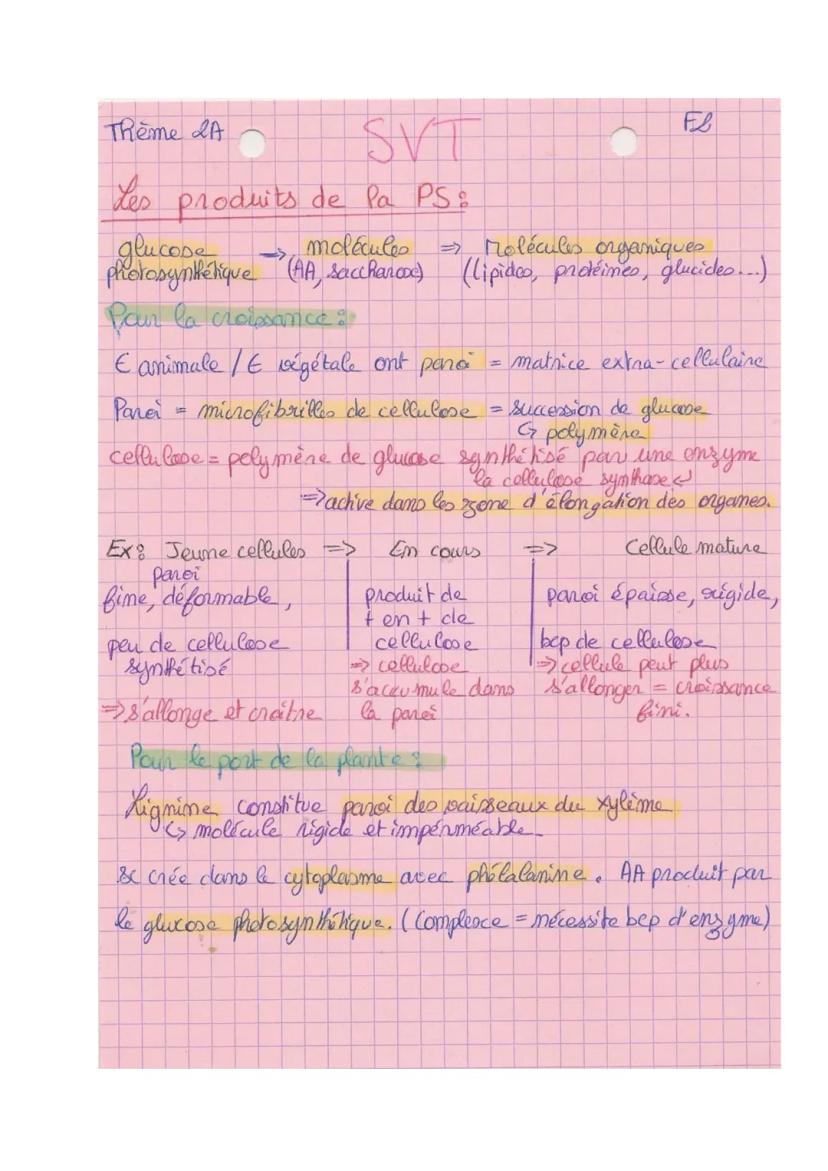 Thème 2A
SVT
F2
Les produits de la PS :
glucose photosynthétique → molécules (AA, saccharose) => Molécules organiques (lipides, protéines, glucides...)
Pour la croissance :
€ animale / € végétale ont paroi = matrice extra-cellulaire
Paroi = microfibrilles de cellulose = succession de glucose
↳ polymère
cellulose = polymère de glucose synthétisé par une enzyme
la cellulose synthase ↲
=> active dans les zone d'élongation des organes.
Ex : Jeune cellules => En cours => Cellule mature
paroi
fine, déformable,
peu de cellulose
synthétisé
=> s'allonge et craitre
produit de
+ en + de
cellulose
=> cellulose
s'accumule dans
la paroi
paroi épaisse, rigide,
bcp de cellulose
=> cellule peut plus
s'allonger = croissance
fini.
Pour le port de la plante :
Lignine constitue paroi des vaisseaux du xylème
↳ molécule rigide et imperméable
se crée dans le cytoplasme avec phélalanine. AA produit par
le glucose photosynthétique. (Complexe = nécessite bcp d'enzyme)